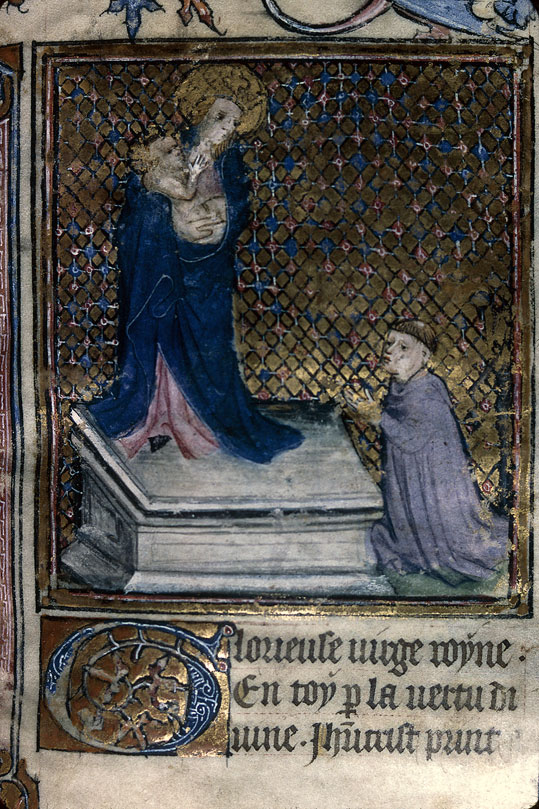 Glorieuse uirge royne.
En toy p̲ la uertu di
uine. Jhūcrist print